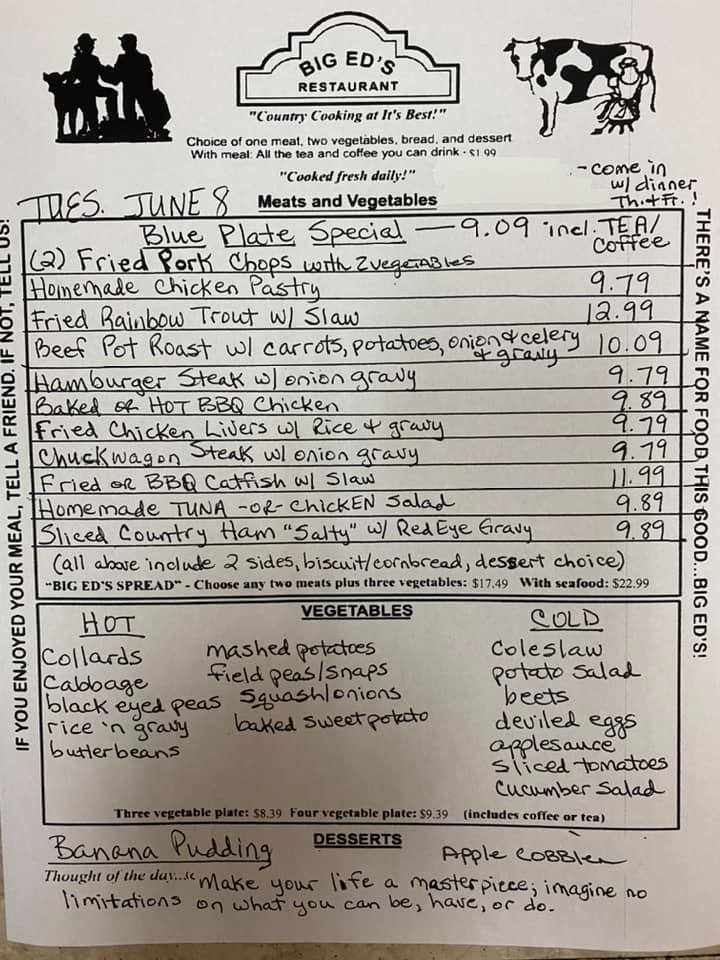 BIG ED'S
RESTAURANT
"Country Cooking at It's Best!"
Choice of one meat, two vegetables, bread, and dessert
With meal: All the tea and coffee you can drink - $1.99
"Cooked fresh daily!"
- come in
w/ dinner
Th. + Fr. !
TUES. JUNE 8
Meats and Vegetables
Blue Plate Special — 9.09 incl. TEA/
Coffee
(2) Fried Pork Chops with 2 vegetables
Homemade Chicken Pastry 9.79
Fried Rainbow Trout w/ Slaw 12.99
Beef Pot Roast w/ carrots, potatoes, onion & celery 10.09
& gravy
Hamburger Steak w/ onion gravy 9.79
Baked or HOT BBQ Chicken 9.89
Fried Chicken Livers w/ Rice & gravy 9.79
Chuckwagon Steak w/ onion gravy 9.79
Fried or BBQ Catfish w/ Slaw 11.99
Homemade TUNA -OR- ChickEN Salad 9.89
Sliced Country Ham "Salty" w/ RedEye Gravy 9.89
(all above include 2 sides, biscuit/cornbread, dessert choice)
"BIG ED'S SPREAD" - Choose any two meats plus three vegetables: $17.49 With seafood: $22.99
IF YOU ENJOYED YOUR MEAL, TELL A FRIEND. IF NOT, TELL US!
THERE'S A NAME FOR FOOD THIS GOOD...BIG ED'S!
VEGETABLES
HOT
Collards
Cabbage
black eyed peas
rice 'n gravy
butterbeans
mashed potatoes
field peas/snaps
Squash/onions
baked sweet potato
COLD
Coleslaw
potato salad
beets
deviled eggs
applesauce
sliced tomatoes
Cucumber Salad
Three vegetable plate: $8.39 Four vegetable plate: $9.39 (includes coffee or tea)
DESSERTS
Banana Pudding
Apple Cobbler
Thought of the day...
Make your life a masterpiece; imagine no
limitations on what you can be, have, or do.